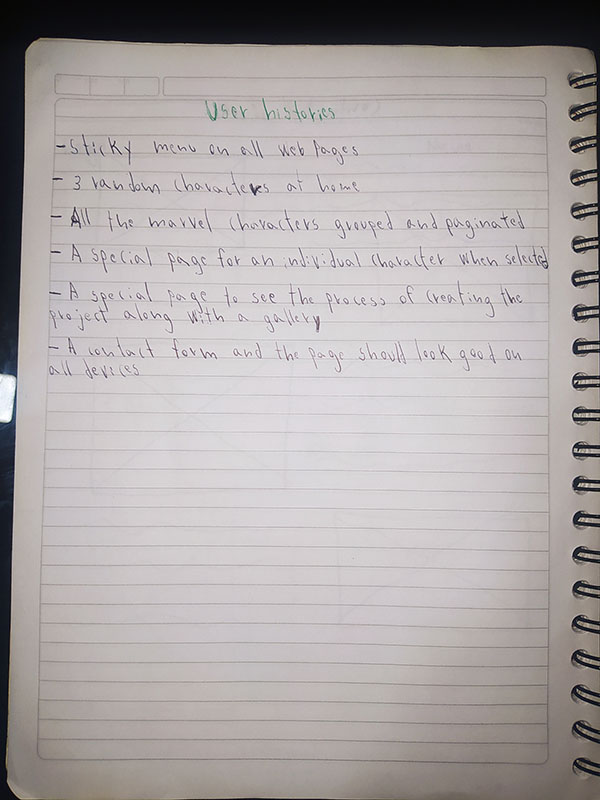 User histories
- Sticky menu on all web pages
- 3 random characters at home
- All the marvel characters grouped and paginated
- A special page for an individual character when selected
- A special page to see the process of creating the
project along with a gallery
- A contact form and the page should look good on
all devices